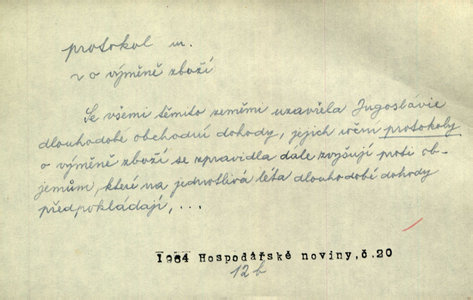 protokol m.
~ o výměně zboží
Se všemi těmito zeměmi uzavřela Jugoslávie
dlouhodobé obchodní dohody, jejich roční protokoly
o výměně zboží se zpravidla dále zvyšují proti ob-
jemům, které na jednotlivá léta dlouhodobé dohody
předpokládají, ...
1964 Hospodářské noviny, č.20
12 b